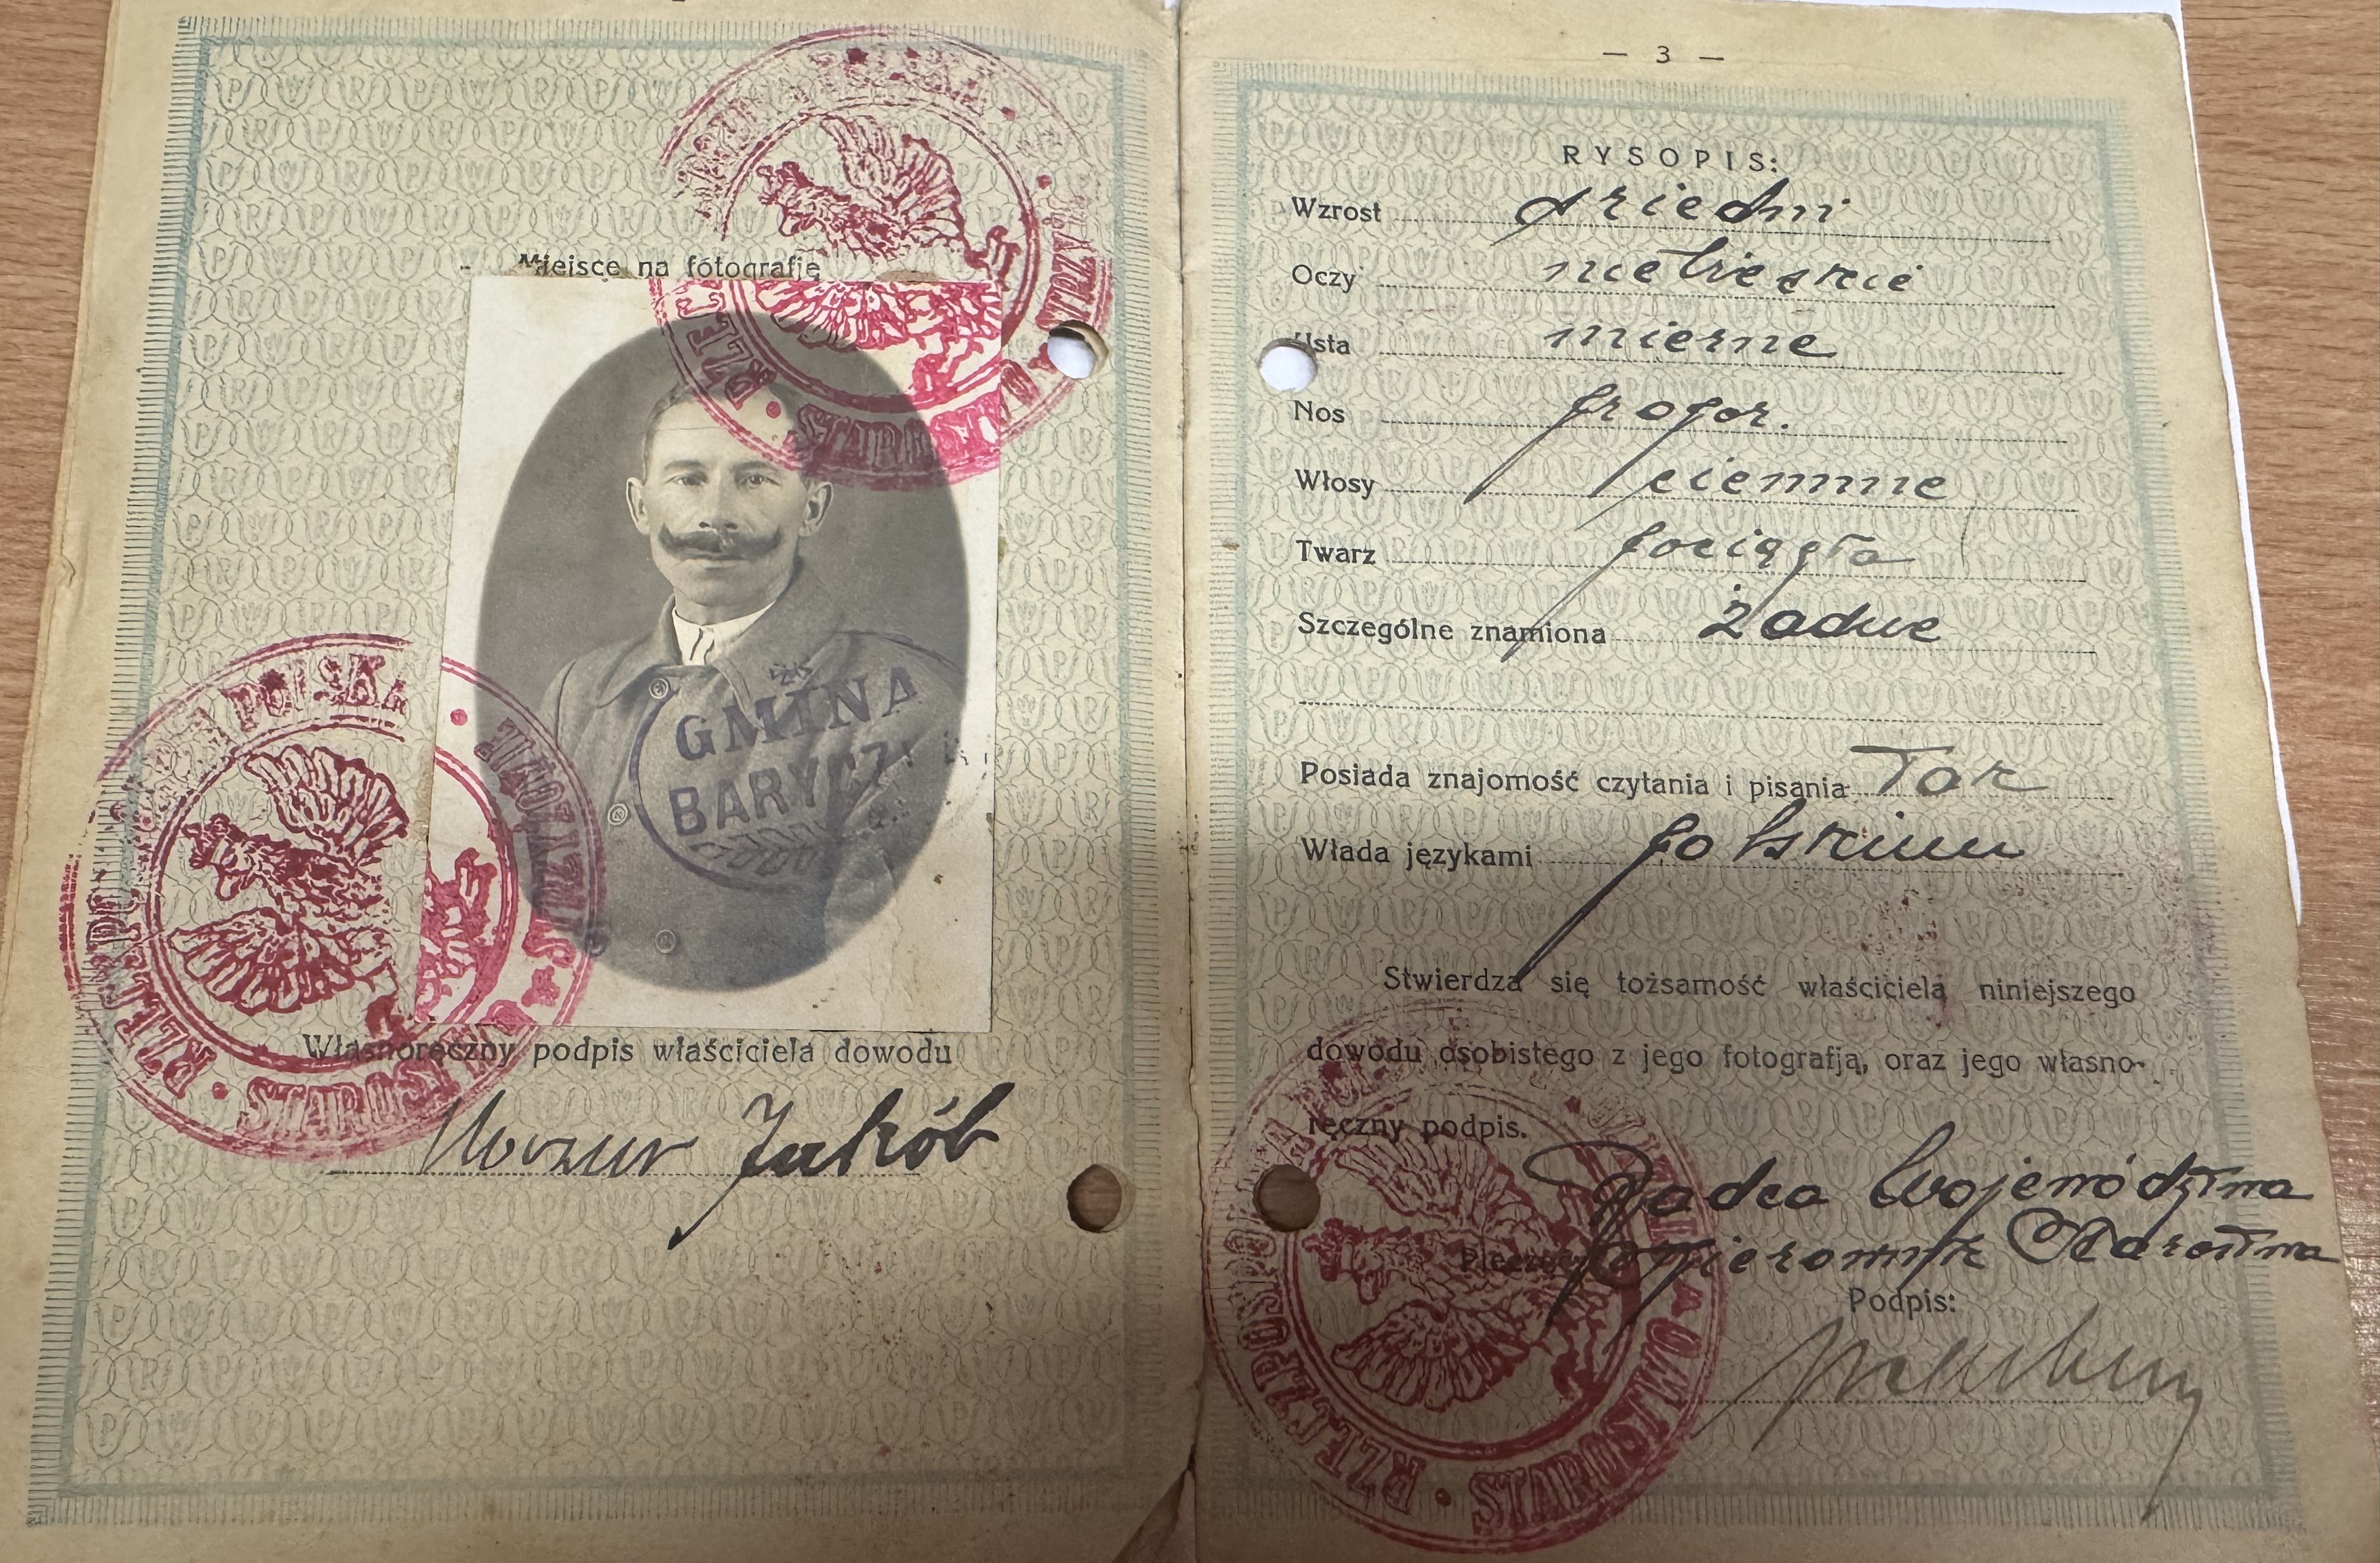 Miejsce na fotografję
RZECZPOSPOLITA POLSKA
GMINA
BARYCZ
RZECZPOSPOLITA POLSKA
Własnoręczny podpis właściciela dowodu
Mazur Jakób
— 3 —
RYSOPIS:
Wzrost średni
Oczy niebieskie
Usta mierne
Nos propor.
Włosy ciemne
Twarz pociągła
Szczególne znamiona żadne
Posiada znajomość czytania i pisania Tak
Włada językami polskim
Stwierdza się tożsamość właściciela niniejszego
dowodu osobistego z jego fotografją, oraz jego własno-
ręczny podpis.
Radca Województwa
Kierownik Starostwa
Podpis: